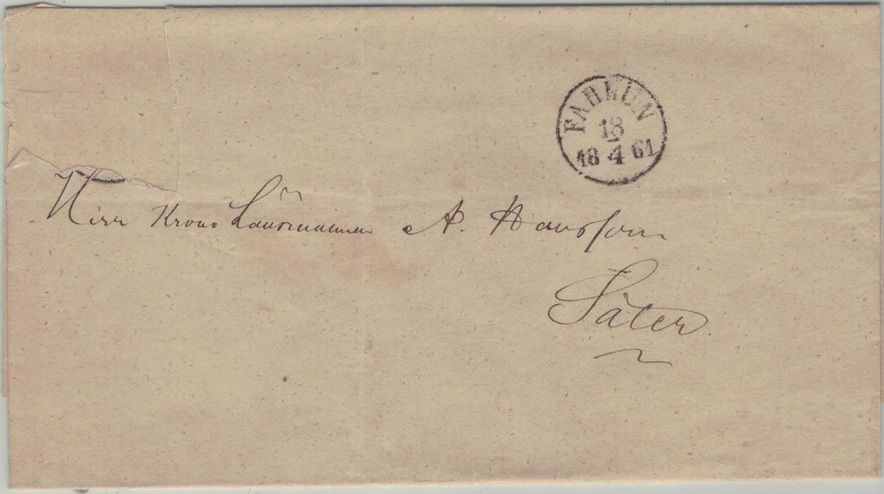 FAHLUN
18
4
18 61
Herr Krono Länsmannen A. Hansson
Säter